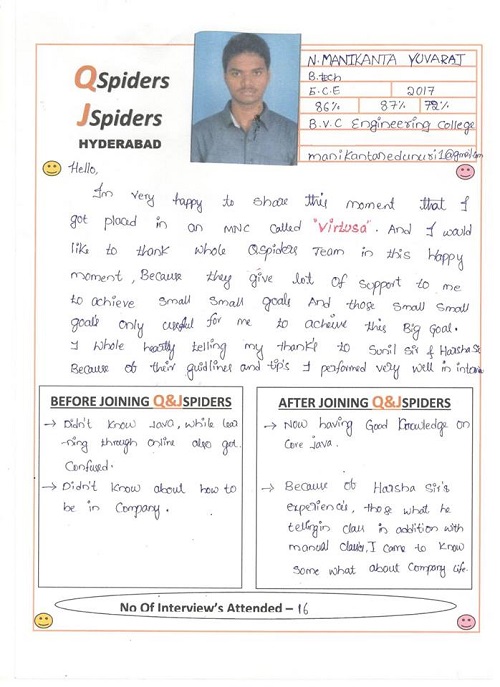 QSpiders
JSpiders
HYDERABAD
N. MANIKANTA YUVARAJ
B.tech
E.C.E 2017
86% 87% 72%
B.V.C Engineering College
manikantanedunuri1@gmail.com
Hello,
Im very happy to share this moment that I
got placed in an MNC called "Virtusa". And I would
like to thank whole QSpiders Team in this Happy
moment, Because they give lot of support to me
to achieve small small goals And those small small
goals only useful for me to acheive this Big Goal.
I whole heartly telling my thanks to Sunil Sir & Harsha Sir
Because of their guidlines and tip's I performed very well in
BEFORE JOINING Q&JSPIDERS
→ Didn't know Java, while lear
-ning through online also got
Confused.
→ Didn't know about how to
be in Company.
AFTER JOINING Q&JSPIDERS
→ Now having Good Knowledge on
Core java.
→ Because of Harsha Sir's
experiences, those what he
telling in class in addition with
manual classes, I came to know
some what about Company life.
No Of Interview's Attended – 16